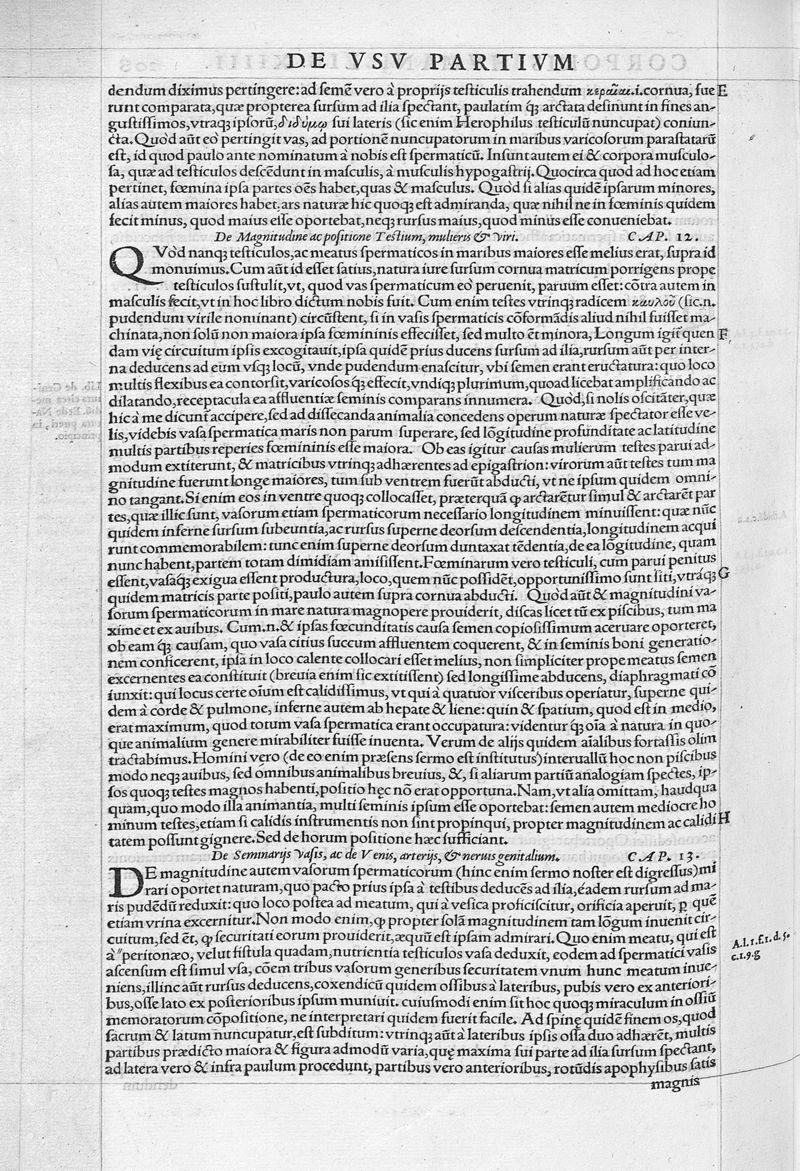 DE VSV PARTIVM
dendum diximus pertingere: ad semē vero à proprijs testiculis trahendum κεραίαι.i.cornua, fue E
runt comparata, quæ propterea sursum ad ilia spectant, paulatim q́; arctata desinunt in fines an-
gustissimos, vtraq; ipsorū, διδύμῳ sui lateris (sic enim Herophilus testiculū nuncupat) coniun-
cta. Quod aūt eo pertingit vas, ad portionē nuncupatorum in maribus varicosorum parastatarū
est, id quod paulo ante nominatum à nobis est spermaticū. Insunt autem ei & corpora musculo-
sa, quæ ad testiculos descēdunt in masculis, à musculis hypogastrij. Quocirca quod ad hoc etiam
pertinet, fœmina ipsa partes oēs habet, quas & masculus. Quod si alias quidē ipsarum minores,
alias autem maiores habet, ars naturæ hic quoq; est admiranda, quæ nihil ne in fœminis quidem
fecit minus, quod maius esse oportebat, neq; rursus maius, quod minus esse conueniebat.
De Magnitudine ac positione Testium, mulieris & viri. CAP. 12.
QVod nanq; testiculos, ac meatus spermaticos in maribus maiores esse melius erat, supra id
monuimus. Cum aūt id esset satius, natura iure sursum cornua matricum porrigens prope
testiculos sustulit, vt, quod vas spermaticum eo peruenit, paruum esset: cōtra autem in
masculis fecit, vt in hoc libro dictum nobis fuit. Cum enim testes vtrinq; radicem καυλοῦ (sic.n.
pudendum virile nominant) circūstent, si in vasis spermaticis cōformādis aliud nihil fuisset ma-
chinata, non solū non maiora ipsa fœmininis effecisset, sed multo ēt minora, Longum igit̄ quen F
dam vię circuitum ipsis excogitauit, ipsa quidē prius ducens sursum ad ilia, rursum aūt per inter-
na deducens ad eum vsq; locū, vnde pudendum enascitur, vbi semen erant eructatura: quo loco
multis flexibus ea contorsit, varicosos q́; effecit, vndiq; plurimum, quoad licebat amplificando ac
dilatando, receptacula ea affluentiæ seminis comparans innumera. Quod, si nolis oscitāter, quæ
hic à me dicunt̄ accipere, sed ad dissecanda animalia concedens operum naturæ spectator esse ve-
lis, videbis vasa spermatica maris non parum superare, sed lōgitudine profunditate ac latitudine
multis partibus reperies fœmininis esse maiora. Ob eas igitur causas mulierum testes parui ad-
modum extiterunt, & matricibus vtrinq; adhærentes ad epigastrion: virorum aūt testes tum ma
gnitudine fuerunt longe maiores, tum sub ventrem fuerūt abducti, vt ne ipsum quidem omni-
no tangant. Si enim eos in ventre quoq; collocasset, præterquā ꝙ arctarētur simul & arctarēt par
tes, quæ illic sunt, vasorum etiam spermaticorum necessario longitudinem minuissent: quæ nūc
quidem inferne sursum subeuntia, ac rursus superne deorsum descendentia, longitudinem acqui
runt commemorabilem: tunc enim superne deorsum duntaxat tēdentia, de ea lōgitudine, quam
nunc habent, partem totam dimidiam amisissent. Fœminarum vero testiculi, cum parui penitus
essent, vasaq́; exigua essent productura, loco, quem nūc possidēt, opportunissimo sunt siti, vtráq; G
quidem matricis parte positi, paulo autem supra cornua abducti. Quod aūt & magnitudini va-
sorum spermaticorum in mare natura magnopere prouiderit, discas licet tū ex piscibus, tum ma
xime et ex auibus. Cum.n. & ipsas fœcunditatis causa semen copiosissimum aceruare oporteret,
ob eam q́; causam, quo vasa citius succum affluentem coquerent, & in seminis boni generatio-
nem conficerent, ipsa in loco calente collocari esset melius, non simpliciter prope meatus semen
excernentes ea constituit (breuia enim sic extitissent) sed longissime abducens, diaphragmati cō
iunxit: qui locus certe oīum est calidissimus, vt qui à quatuor visceribus operiatur, superne qui-
dem à corde & pulmone, inferne autem ab hepate & liene: quin & spatium, quod est in medio,
erat maximum, quod totum vasa spermatica erant occupatura: videntur q́; oīa à natura in quo-
que animalium genere mirabiliter fuisse inuenta. Verum de alijs quidem aīalibus fortassis olim
tractabimus. Homini vero (de eo enim præsens sermo est institutus) interuallū hoc non piscibus
modo neq; auibus, sed omnibus animalibus breuius, &, si aliarum partiū analogiam spectes, ip-
sos quoq; testes magnos habenti, positio hęc nō erat opportuna. Nam, vt alia omittam, haudqua
quam, quo modo illa animantia, multi seminis ipsum esse oportebat: semen autem mediocre ho
minum testes, etiam si calidis instrumentis non sint propinqui, propter magnitudinem ac calidi H
tatem possunt gignere. Sed de horum positione hæc sufficiant.
De Seminarijs Vasis, ac de Venis, arterijs, & neruis genitalium. CAP. 13.
DE magnitudine autem vasorum spermaticorum (hinc enim sermo noster est digressus) mi
rari oportet naturam, quo pacto prius ipsa à testibus deducēs ad ilia, éadem rursum ad ma-
ris pudēdū reduxit: quo loco postea ad meatum, qui à vesica proficiscitur, orificia aperuit, ꝑ quē
etiam vrina excernitur. Non modo enim, ꝙ propter solā magnitudinem tam lōgum inuenit cir-
cuitum, sed ēt, ꝙ securitati eorum prouiderit, æquū est ipsam admirari. Quo enim meatu, qui est
à "peritonæo, velut fistula quadam, nutrientia testiculos vasa deduxit, eodem ad spermatici vasis
ascensum est simul vsa, cōem tribus vasorum generibus securitatem vnum hunc meatum inue-
niens, illinc aūt rursus deducens, coxendicū quidem ossibus à lateribus, pubis vero ex anteriori-
bus, osse lato ex posterioribus ipsum muniuit. cuiusmodi enim sit hoc quoq; miraculum in ossiū
memoratorum cōpositione, ne interpretari quidem fuerit facile. Ad spinę quidē finem os, quod
sacrum & latum nuncupatur, est subditum: vtrinq; aūt à lateribus ipsis ossa duo adhærēt, multis
partibus prædicto maiora & figura admodū varia, quę maxima sui parte ad ilia sursum spectant,
ad latera vero & infra paulum procedunt, partibus vero anterioribus, rotūdis apophysibus satis
magnis
A.l. 1. f. 1. d. 5.
c. 1. 9. g